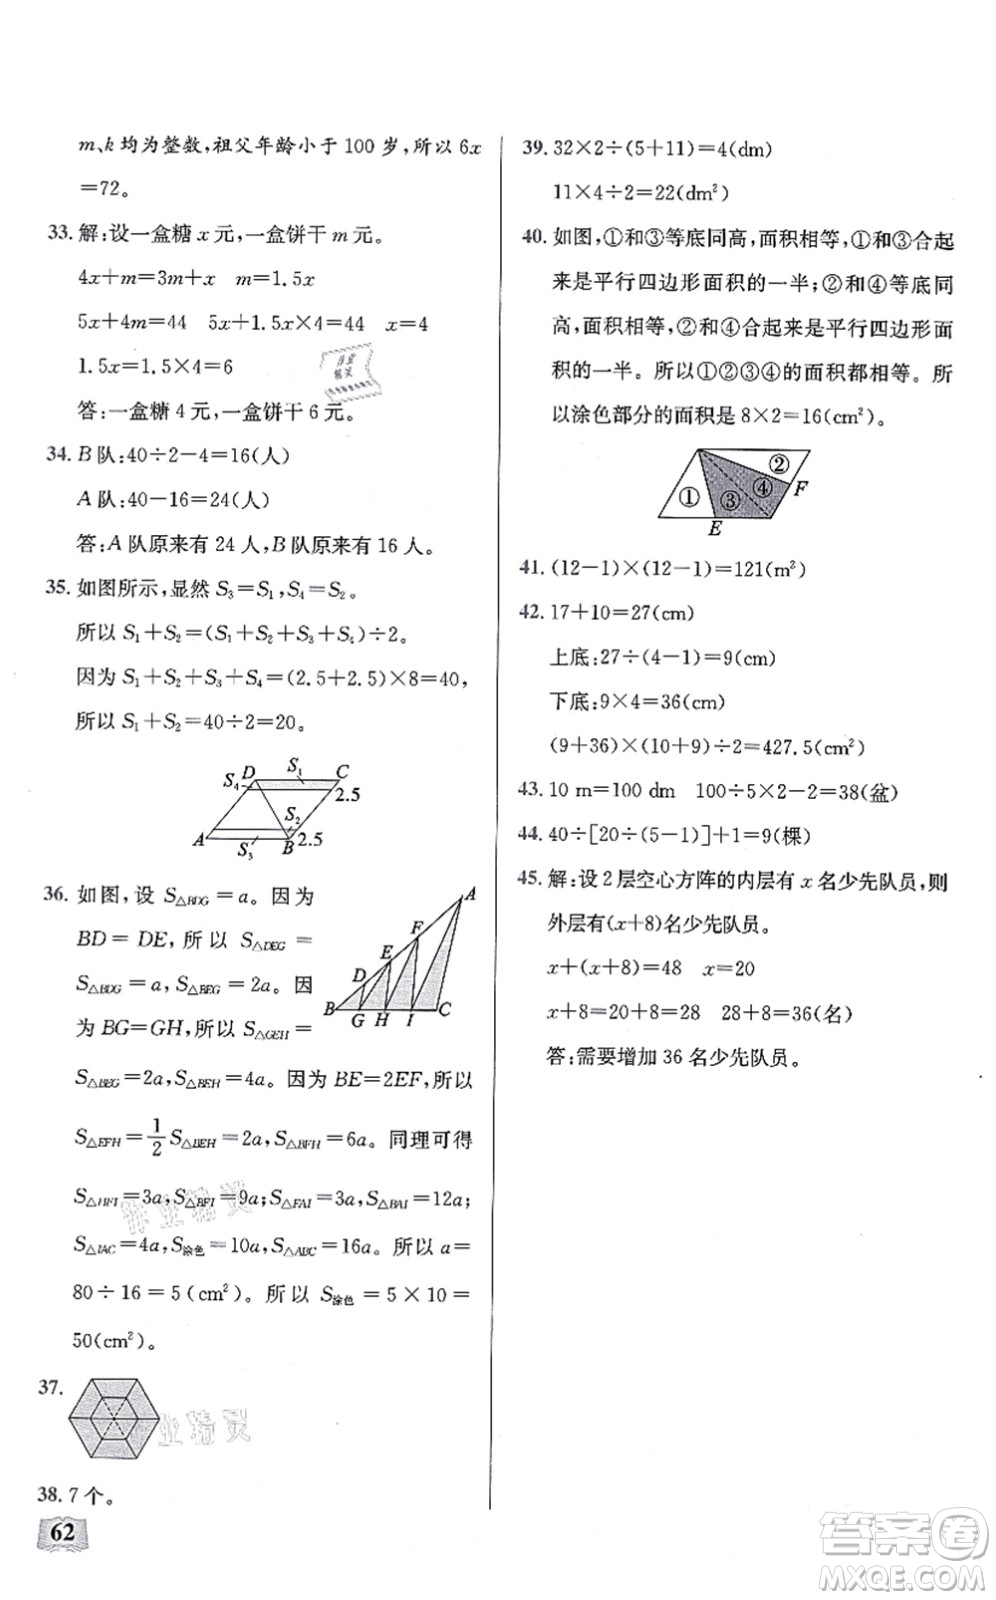 m、k均为整数,祖父年龄小于100岁,所以6x
=72。
33. 解:设一盒糖x元,一盒饼干m元。
4x+m=3m+x m=1.5x
5x+4m=44 5x+1.5x×4=44 x=4
1.5x=1.5×4=6
答:一盒糖4元,一盒饼干6元。
34. B队:40÷2-4=16(人)
A队:40-16=24(人)
答:A队原来有24人,B队原来有16人。
35. 如图所示,显然S₃=S₁,S₄=S₂。
所以S₁+S₂=(S₁+S₂+S₃+S₄)÷2。
因为S₁+S₂+S₃+S₄=(2.5+2.5)×8=40,
所以S₁+S₂=40÷2=20。
D S₁ C
S₄ 2.5
S₂
A S₃ B 2.5
36. 如图,设S△BDG=a。因为
BD=DE,所以S△DEG=
S△BDG=a,S△BEG=2a。因
为BG=GH,所以S△GEH=
S△BEG=2a,S△BEH=4a。因为BE=2EF,所以
S△EFH=1/2S△BEH=2a,S△BFH=6a。同理可得
S△HFI=3a,S△BFI=9a;S△FAI=3a,S△BAI=12a;
S△IAC=4a,S涂色=10a,S△ABC=16a。所以a=
80÷16=5(cm²)。所以S涂色=5×10=
50(cm²)。
A
F
E
D
B G H I C
37.
38. 7个。
62
39. 32×2÷(5+11)=4(dm)
11×4÷2=22(dm²)
40. 如图,①和③等底同高,面积相等,①和③合起
来是平行四边形面积的一半;②和④等底同
高,面积相等,②和④合起来是平行四边形面
积的一半。所以①②③④的面积都相等。所
以涂色部分的面积是8×2=16(cm²)。
② ④ F
① ③
E
41. (12-1)×(12-1)=121(m²)
42. 17+10=27(cm)
上底:27÷(4-1)=9(cm)
下底:9×4=36(cm)
(9+36)×(10+9)÷2=427.5(cm²)
43. 10 m=100 dm 100÷5×2-2=38(盆)
44. 40÷[20÷(5-1)]+1=9(棵)
45. 解:设2层空心方阵的内层有x名少先队员,则
外层有(x+8)名少先队员。
x+(x+8)=48 x=20
x+8=20+8=28 28+8=36(名)
答:需要增加36名少先队员。
答案圈
MXQE.COM